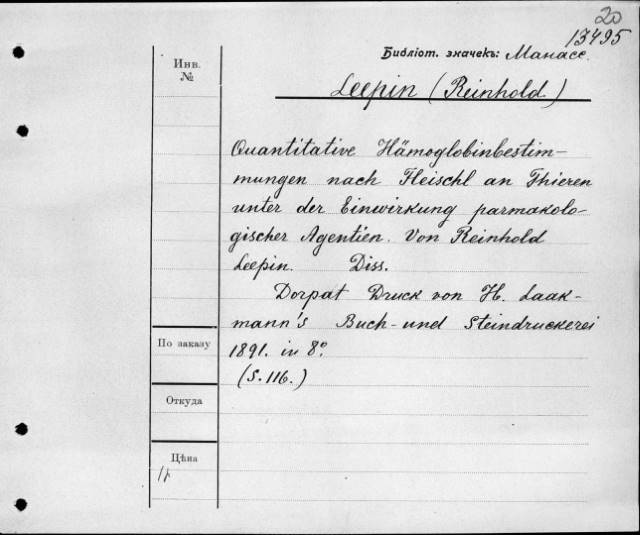 20
13495
Библіот. значекъ: Манасс.
Инв.
№
Leepin (Reinhold)
Quantitative Hämoglobinbestim-
mungen nach Fleischl an Thieren
unter der Einwirkung parmakolo-
gischer Agentien. Von Reinhold
Leepin. Diss.
Dorpat Druck von H. Laak-
mann's Buch- und Steindruckerei
1891. in 8°.
(S. 116.)
По заказу
Откуда
Цѣна